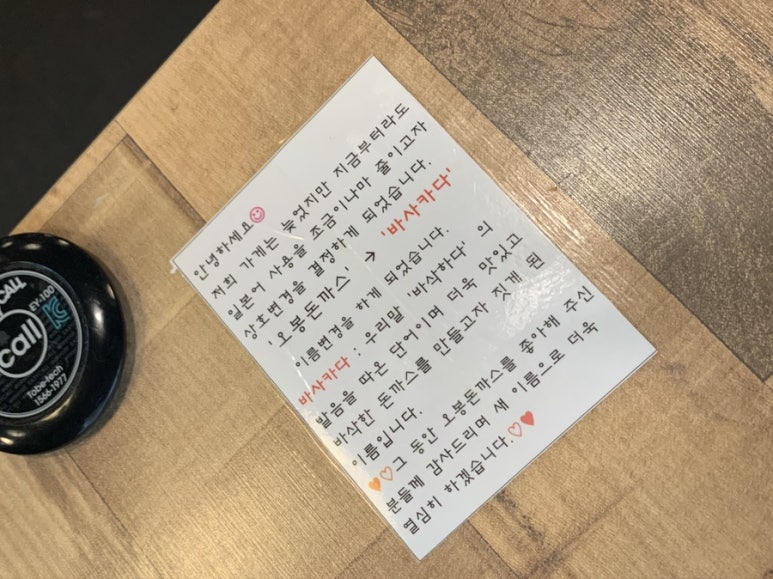 안녕하세요
저희 가게는 늦었지만 지금부터라도
일본어 사용을 조금이나마 줄이고자
상호변경을 결정하게 되었습니다.
'오봉돈까스' → '바사카다'
이름변경을 하게 되었습니다.
바사카다 : 우리말 '바삭하다' 의
발음을 따온 단어이며 더욱 맛있고
바삭한 돈까스를 만들고자 짓게 된
이름입니다.
🧡♡그 동안 오봉돈까스를 좋아해 주신
분들께 감사드리며 새 이름으로 더욱
열심히 하겠습니다.♡♥
CALL
EY-100
call
Tobe-tech
1566-1977